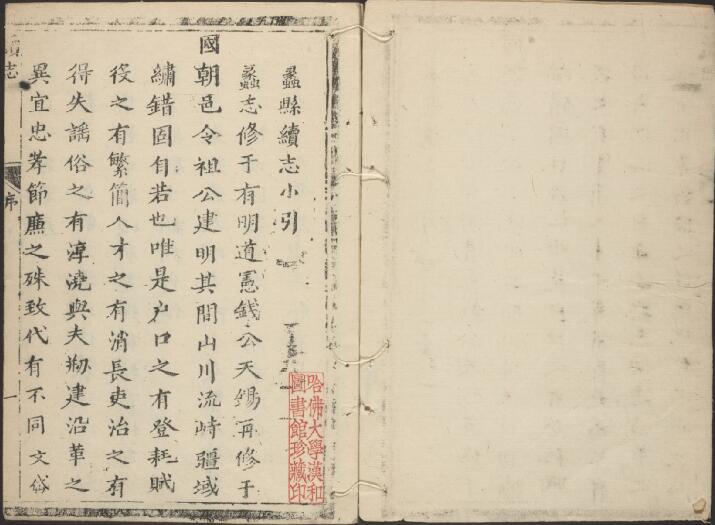 蠡縣續志小引
蠡志修于有明道憲錢公天錫再修于
國朝邑令祖公建明其間山川流峙疆域
繡錯固自若也唯是户口之有登耗賦
役之有繁簡人才之有消長吏治之有
得失謠俗之有淳澆與夫刱建沿革之
異宜忠孝節廉之殊致代有不同文俗
續志
序
一
哈佛大學漢和
圖書館珍藏印